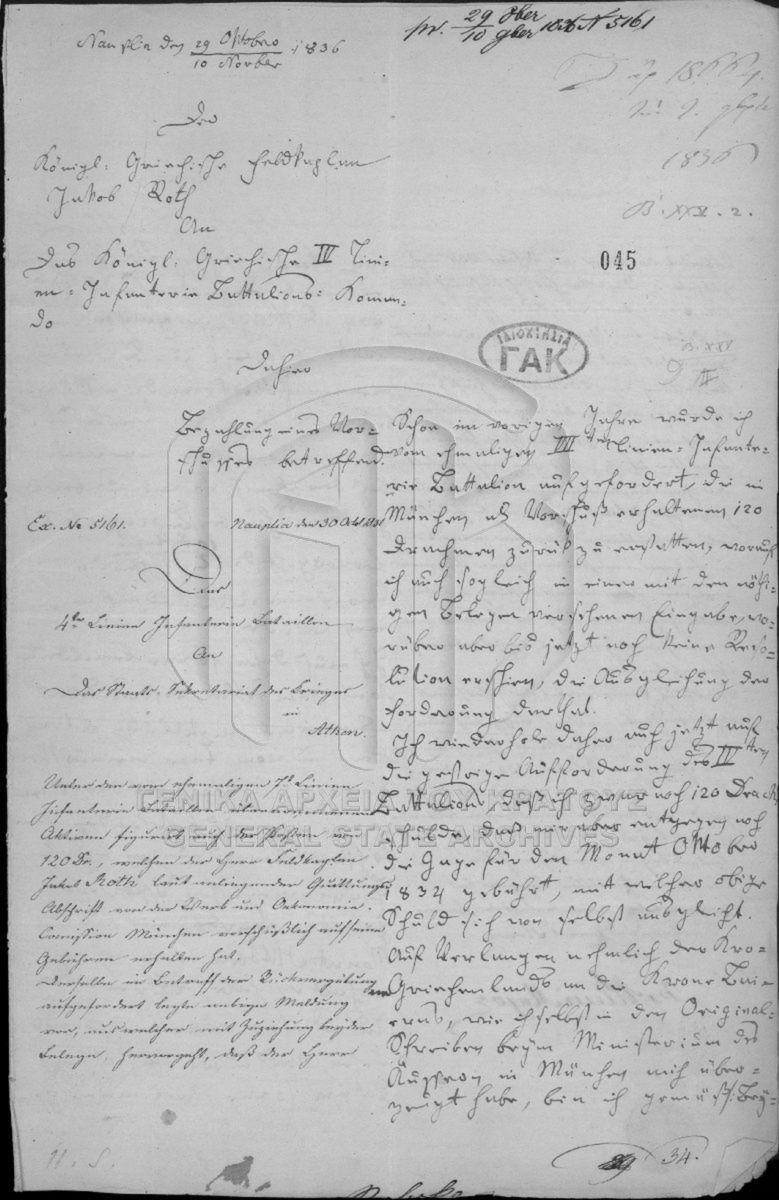 Nauplia den 29 Oktober / 10 Novber 1836
pr. 29 8ber / 10 9ber 1836 N 5161
1836
B. XXV. 2.
045
Der
Königl: Griechische Feldkaplan
Jakob Roth
An
Das Königl: Griechische IV Lini-
en-Infanterie Battalions-Komman-
do
ΙΔΙΟΚΤΗΣΙΑ
ΓΑΚ
B. XXV
II
Dahier
Bezahlung eines Vor-
schusses betreffend.
Ex. No 5161.
Nauplia den 30 Okt 1836
Das
4te Linien Infanterie Bataillon
An
Das Staats-Sekretariat des Krieges
in
Athen.
Unter den vom ehemaligen 7t Linien
Infanterie Bataillon übernommenen
Aktiven figurirt auch der Posten von
120 Dr., welchen der Herr Feldkaplan
Jakob Roth laut anliegender Quittungs
Abschrift von der Werb und Oekonomie-
Comission München vorschüßlich auf seine
Gebühren erhalten hat.
Derselbe in Betreff der Rückvergütung
aufgefordert legte anliege Meldung
vor, aus welcher mit Zuziehung beyder
Belege, hervorgeht, daß der Herr
Schon im vorigen Jahre wurde ich
vom ehmaligen VII ten Linien-Infante-
rie Battalion aufgefordert, die in
München als Vorschuß erhaltenen 120
Drachmen zurük zu erstatten, worauf
ich auch sogleich in einer mit den nöthi-
gen Belegen versehenen Eingabe, wo-
rüber aber bis jetzt noch keine Reso-
lution erschien, die Ausgleichung der
Forderung derthat.
Ich wiederhole daher auch jetzt auf
die gestrige Aufforderung des IV ten
Battalions, daß ich zwar noch 120 Drach.
schulde, daß mir aber entgegen noch
die Gage für den Monat Oktober
1834 gebührt, mit welcher obige
Schuld sich von selbst ausgleicht.
Auf Verlangen nehmlich der Kro-
ne Griechenlands an die Krone Bai-
erns, wie ich selbst in den Original-
Schreiben beym Ministerium des
Äussern in München mich über-
zeugt habe, bin ich gemäß Bey-
ΓΕΝΙΚΑ ΑΡΧΕΙΑ ΤΟΥ ΚΡΑΤΟΥΣ
GENERAL STATE ARCHIVES
34.